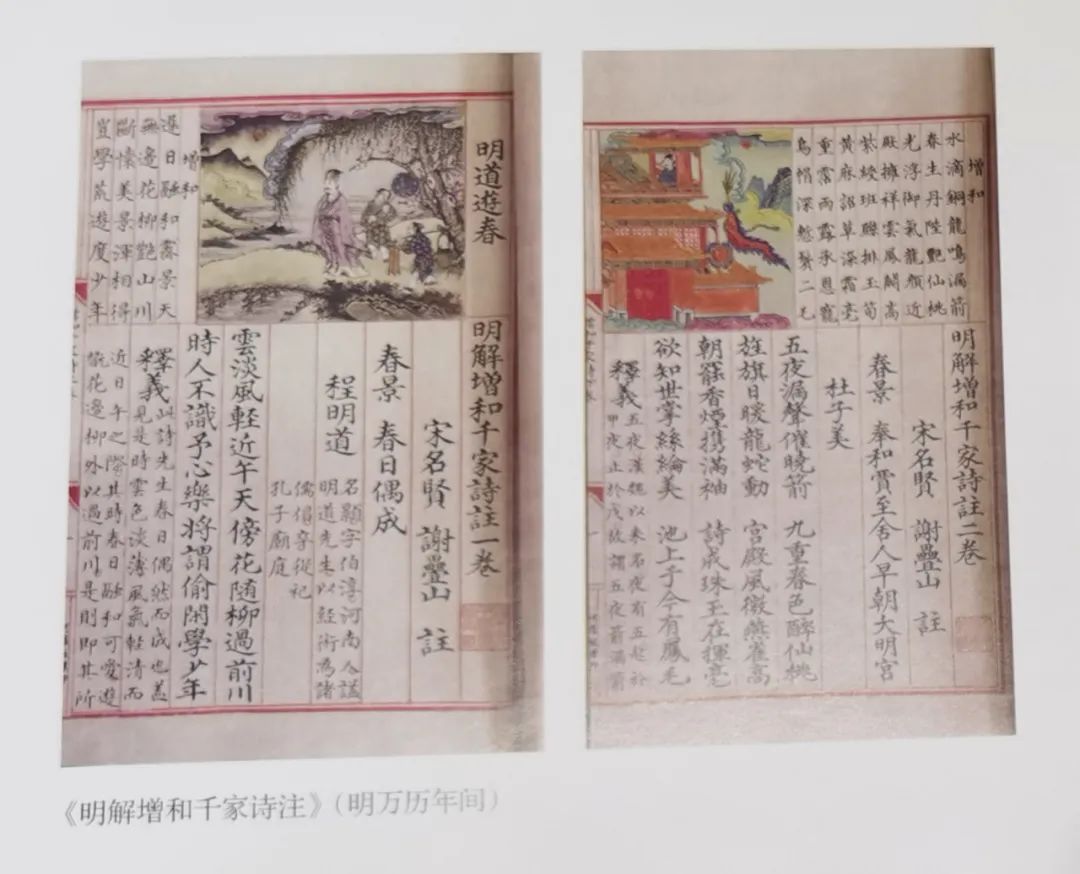 明道遊春
增和
遲日融和霽景天
無邊花柳艷山川
美景渾相得
豈學荒遊度少年
明解增和千家詩註一卷
宋名賢 謝疊山 註
春景 春日偶成
程明道
名顥字伯淳河南人諡
明道先生以經術為諸
儒倡卒從祀
孔子廟庭
雲淡風輕近午天傍花隨柳過前川
時人不識予心樂將謂偷閑學少年
釋義
此詩先生春日偶然而成也蓋
見是時雲色淡薄風氣輕清而
近日午之際其時春日融和可愛遊
翫花邊柳外以過前川是則即其所
增和
水滴銅龍鳴漏箭
春生丹陛艷仙桃
光浮御氣龍顏近
殿擁祥雲鳳闕高
紫綬班聯排玉筍
黃麻詔草深霜毫
重霑雨露承恩寵
烏帽深愁鬢二毛
明解增和千家詩註二卷
宋名賢 謝疊山 註
春景 奉和賈至舍人早朝大明宮
杜子美
五夜漏聲催曉箭 九重春色醉仙桃
旌旗日暖龍蛇動 宮殿風微燕雀高
朝罷香煙攜滿袖 詩成珠玉在揮毫
欲知世掌絲綸美 池上于今有鳳毛
釋義
五夜漢魏以來名夜有五起於
甲夜止於戊故謂五夜箭漏箭
《明解增和千家诗注》(明万历年间)